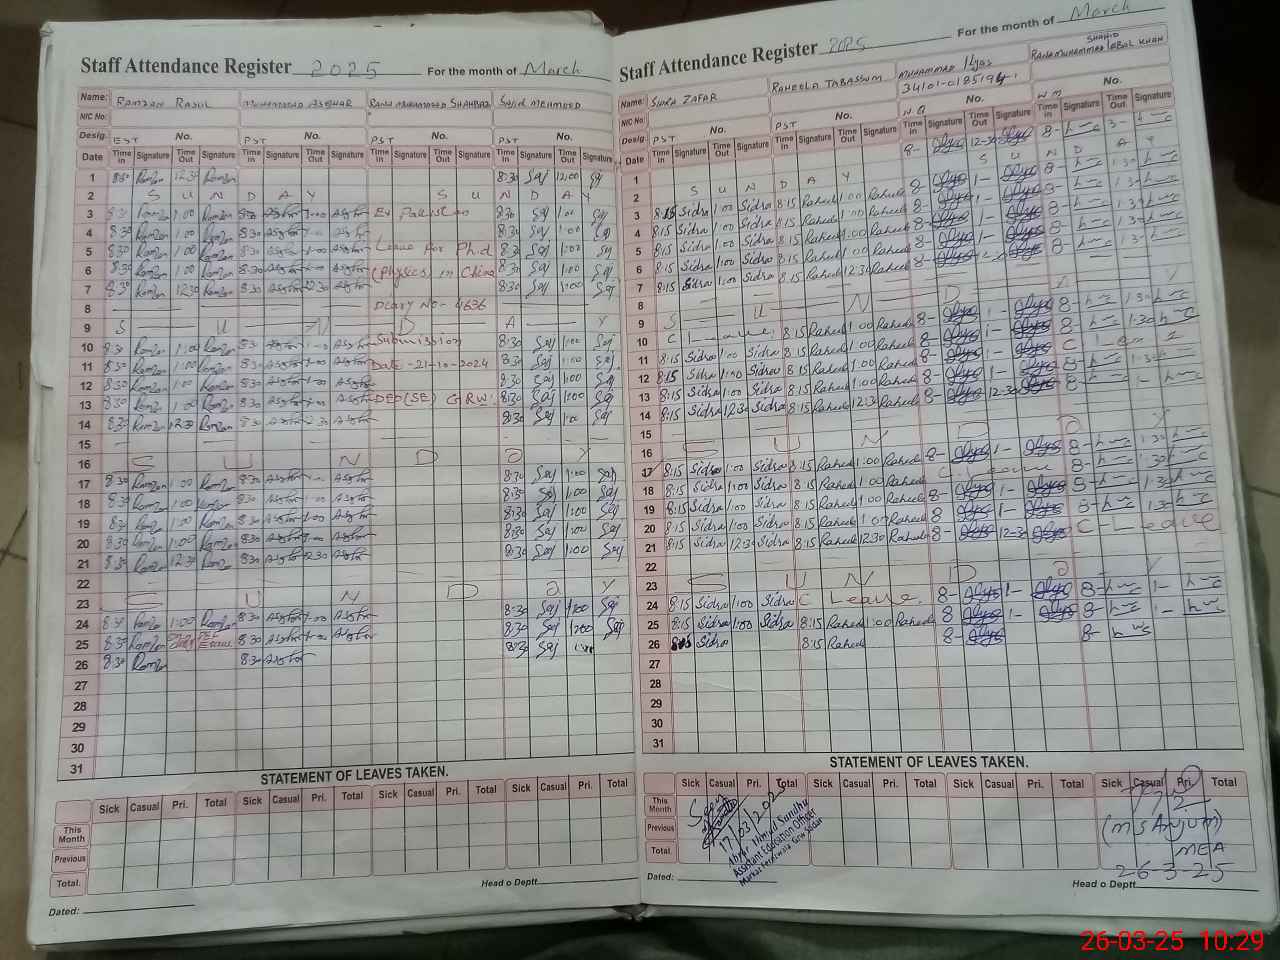 Staff Attendance Register 2025 For the month of March
Name: RAMZAN RASUL MUHAMMAD ASGHAR RANA MUHAMMAD SHAHBAZ SAJID MEHMOOD
NIC No:
Desig. EST No. PST PST PST No.
Date Time In Signature Time Out Signature Time In Signature Time Out Signature Time In Signature Time Out Signature Time In Signature Time Out Signature
1 8:30 Ramzan 12:30 Ramzan 8:30 Saj 12:00 Saj
2 S U N D A Y S U N D A Y
3 8:30 Ramzan 1:00 Ramzan 8:30 Asghar 1:00 Asghar Ex Pakistan 8:30 Saj 1:00 Saj
4 8:30 Ramzan 1:00 Ramzan 8:30 Asghar 1:00 Asghar 8:30 Saj 1:00 Saj
5 8:30 Ramzan 1:00 Ramzan 8:30 Asghar 1:00 Asghar Leave for Ph.d 8:30 Saj 1:00 Saj
6 8:30 Ramzan 1:00 Ramzan 8:30 Asghar 1:00 Asghar (Physics) in China 8:30 Saj 1:00 Saj
7 8:30 Ramzan 12:30 Ramzan 8:30 Asghar 12:30 Asghar 8:30 Saj Saj
8 Diary No- 4636
9 S U N D A Y
10 8:30 Ramzan 1:00 Ramzan 8:30 Asghar 1:00 Asghar Submission 8:30 Saj 1:00 Saj
11 8:30 Ramzan 1:00 Ramzan 8:30 Asghar 1:00 Asghar Date -21-10-2024 8:30 Saj 1:00 Saj
12 8:30 Ramzan 1:00 Ramzan 8:30 Asghar 1:00 Asghar 8:30 Saj 1:00 Saj
13 8:30 Ramzan 1:00 Ramzan 8:30 Asghar 1:00 Asghar DEO(SE) GRW. 8:30 Saj 1:00 Saj
14 8:30 Ramzan 12:30 Ramzan 8:30 Asghar Asghar 8:30 Saj 1:00 Saj
15
16 S U N D a y
17 8:30 Ramzan 1:00 Ramzan 8:30 Asghar 1:00 Asghar 8:30 Saj 1:00 Saj
18 8:30 Ramzan 1:00 Ramzan 8:30 Asghar 1:00 Asghar 8:30 Saj 1:00 Saj
19 8:30 Ramzan 1:00 Ramzan 8:30 Asghar 1:00 Asghar 8:30 Saj 1:00 Saj
20 8:30 Ramzan 1:00 Ramzan 8:30 Asghar 1:00 Asghar 8:30 Saj 1:00 Saj
21 8:30 Ramzan 12:30 Ramzan 8:30 Asghar 12:30 Asghar 8:30 Saj 1:00 Saj
22
23 S U N D a y
24 8:30 Ramzan 1:00 Ramzan 8:30 Asghar 1:00 Asghar 8:30 Saj 1:00 Saj
25 8:30 Ramzan 8:30 Asghar 1:00 Asghar 8:30 Saj 1:00 Saj
26 8:30 Ramzan 8:30 Asghar 8:30 Saj
27
28
29
30
31
STATEMENT OF LEAVES TAKEN.
Sick Casual Pri. Total Sick Casual Pri. Total Sick Casual Pri. Total Sick Casual Pri. Total
This Month
Previous
Total.
Head o Deptt
Dated:
Staff Attendance Register 2025 For the month of March
Name: SIDRA ZAFAR RAHEELA TABASSUM MUHAMMAD Ilyas RANA MUHAMMAD SHAHID IQBAL KHAN
NIC No: 34101-0185194
Desig. PST No. PST N.Q No. W.M No.
Date Time In Signature Time Out Signature Time In Signature Time Out Signature Time In Signature Time Out Signature Time In Signature Time Out Signature
1 8- Ilyas 12-30 Ilyas 8-
2 S U N D A Y S U N D A Y
3 8:15 Sidra 1:00 Sidra 8:15 Raheela 1:00 Raheela 8- Ilyas 1- Ilyas 8- 1-30
4 8:15 Sidra 1:00 Sidra 8:15 Raheela 1:00 Raheela 8- Ilyas 1- Ilyas 8- 1-30
5 8:15 Sidra 1:00 Sidra 8:15 Raheela 1:00 Raheela 8- Ilyas 1- Ilyas 8- 1-30
6 8:15 Sidra 1:00 Sidra 8:15 Raheela 1:00 Raheela 8- Ilyas 1- Ilyas 8- 1-30
7 8:15 Sidra Sidra 8:15 Raheela 12:30 Raheela 8- Ilyas Ilyas 8-
8
9 S U N D A Y
10 C Leave. 8:15 Raheela 1:00 Raheela 8- Ilyas 1- Ilyas 8- 1-30
11 8:15 Sidra 1:00 Sidra 8:15 Raheela 1:00 Raheela 8- Ilyas 1- Ilyas 8- 1-30
12 8:15 Sidra 1:00 Sidra 8:15 Raheela 1:00 Raheela 8- Ilyas 1- Ilyas C Leave
13 8:15 Sidra 1:00 Sidra 8:15 Raheela 1:00 Raheela 8- Ilyas 1- Ilyas 8- 1-30
14 8:15 Sidra 12:30 Sidra 8:15 Raheela 12:30 Raheela 8- Ilyas 12-30 Ilyas 8- 1-
15
16 S U N D a y
17 8:15 Sidra 1:00 Sidra 8:15 Raheela 1:00 Raheela 8- Ilyas 1- Ilyas 8- 1-30
18 8:15 Sidra 1:00 Sidra 8:15 Raheela 1:00 Raheela C Leave 8- 1-30
19 8:15 Sidra 1:00 Sidra 8:15 Raheela 1:00 Raheela 8- Ilyas 1- Ilyas 8- 1-30
20 8:15 Sidra 1:00 Sidra 8:15 Raheela 1:00 Raheela 8- Ilyas 1- Ilyas 8- 1-30
21 8:15 Sidra 12:30 Sidra 8:15 Raheela 12:30 Raheela 8- Ilyas 12-30 Ilyas C-Leave
22
23 S U N D a y
24 8:15 Sidra 1:00 Sidra C Leave. 8- Ilyas 1- Ilyas 8- 1-
25 8:15 Sidra 1:00 Sidra 8:15 Raheela 1:00 Raheela 8- Ilyas 1- Ilyas 8- 1-
26 8:15 Sidra 8:15 Raheela 8- Ilyas 8-
27
28
29
30
31
STATEMENT OF LEAVES TAKEN.
Sick Casual Pri. Total Sick Casual Pri. Total Sick Casual Pri. Total Sick Casual Pri. Total
This Month
Previous
Total.
Seen
17/03/2025
Assistant Education Officer
(MS Anjum)
MEA
26-3-25
Dated:
Head o Deptt
26-03-25 10:29